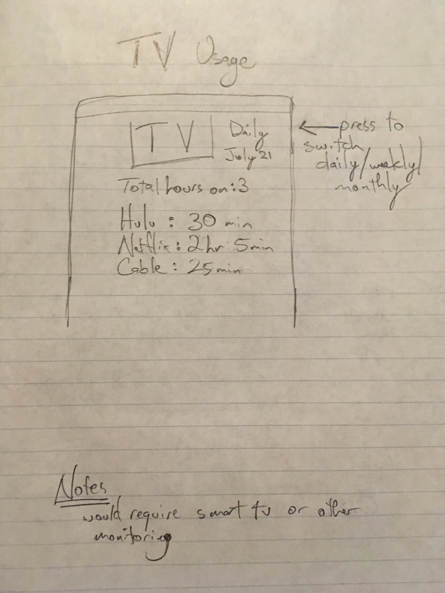 TV Usage
TV
Daily
July 21
← press to
switch
daily/weekly/
monthly
Total hours on: 3
Hulu : 30 min
Netflix : 2 hr 5 min
Cable : 25 min
Notes
would require smart tv or other
monitoring